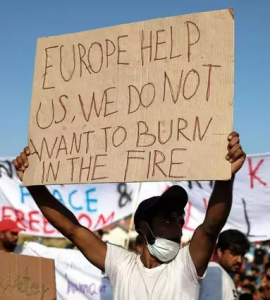 EUROPE HELP
US, WE DO NOT
WANT TO BURN
IN THE FIRE
PEACE &
FREEDOM
human